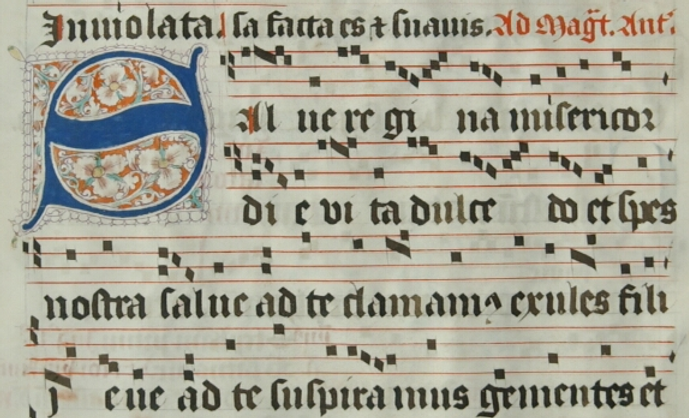 Inuiolata. sa facta es ⁊ suauis. Ad Mag̃t. Ant̃.
SAl ue re gi na misericor
di e vi ta dulce do et spes
nostra salue ad te clamamꝰ exules fili
eue ad te suspira mus gementes et